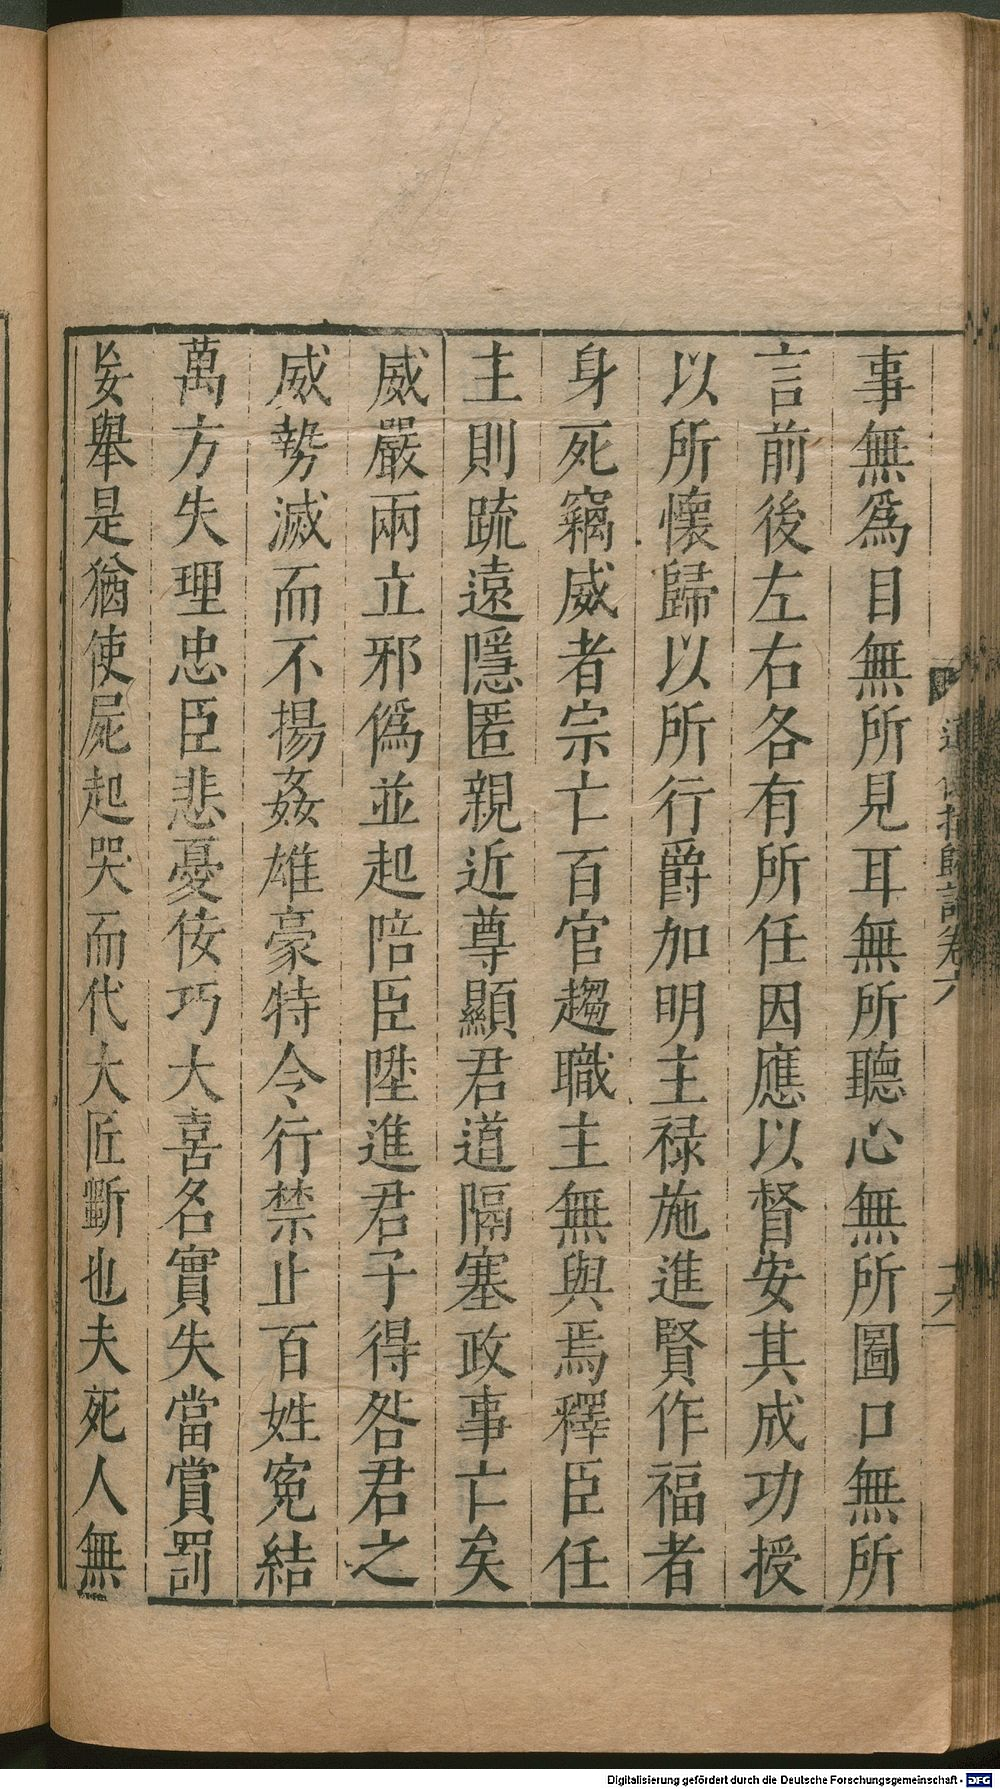 事無爲目無所見耳無所聽心無所圖口無所
言前後左右各有所任因應以督安其成功授
以所懷歸以所行爵加明主祿施進賢作福者
身死竊威者宗亡百官趨職主無與焉釋臣任
主則疏遠隱匿親近尊顯君道隔塞政事亡矣
威嚴兩立邪僞並起陪臣陞進君子得咎君之
威勢滅而不揚姦雄豪特令行禁止百姓寃結
萬方失理忠臣悲憂佞巧大喜名實失當賞罰
妄舉是猶使屍起哭而代大匠斲也夫死人無
道德指歸論卷六
Digitalisierung gefördert durch die Deutsche Forschungsgemeinschaft - DFG